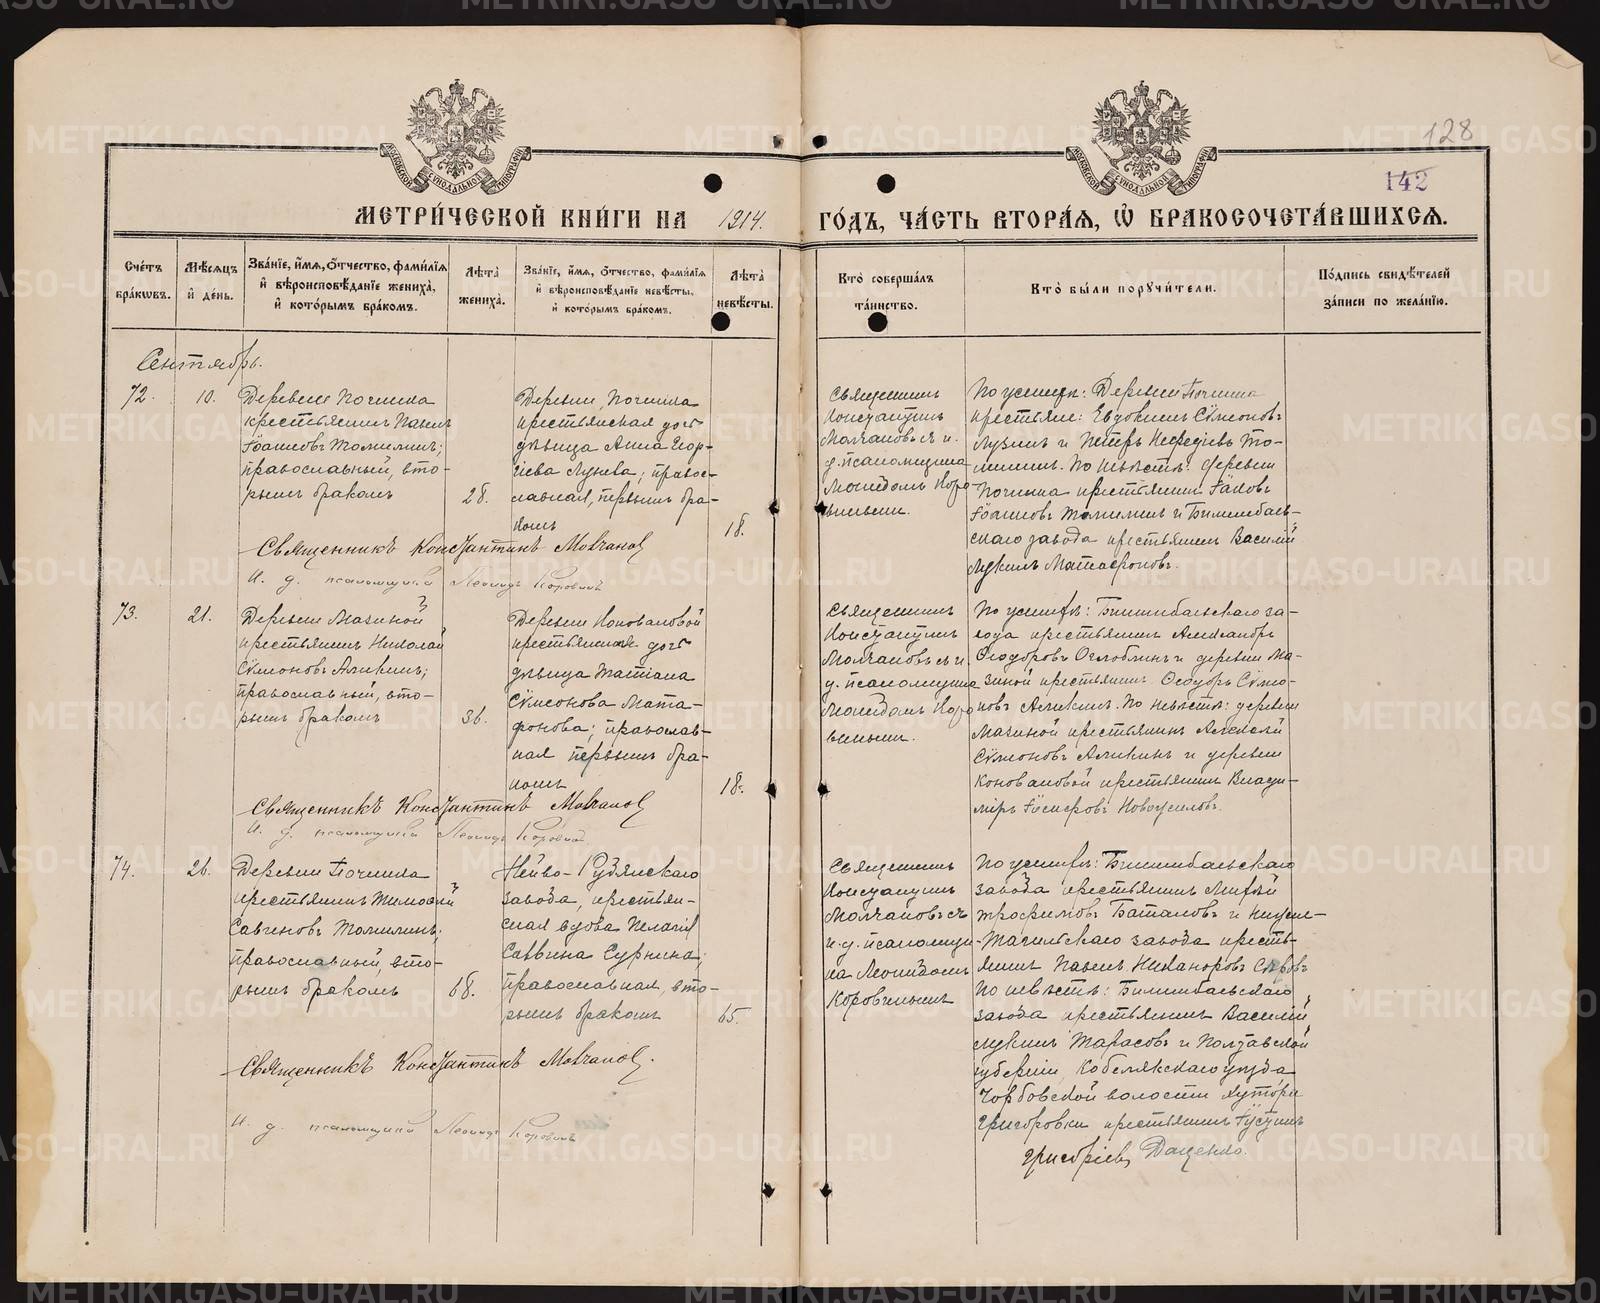 128
142
МОСКОВСКОЙ СѴНОДАЛЬНОЙ ТИПОГРАФІИ
МОСКОВСКОЙ СѴНОДАЛЬНОЙ ТИПОГРАФІИ
МЕТРИ́ЧЕСКОЙ КНИ́ГИ НА 1914. ГО́ДЪ, ЧА́СТЬ ВТОРА́Ѧ, Ѽ БРАКОСОЧЕТА́ВШИХСѦ.
Сче́тъ бра́кѡвъ.
Мѣ́сѧцъ и҆ де́нь.
Зва́нїе, и҆́мѧ, ѻ҆́тчество, фами́лїѧ и҆ вѣроисповѣ́данїе жениха̀, и҆ кото́рымъ бра́комъ.
Лѣта̀ жениха̀.
Зва́нїе, и҆́мѧ, ѻ҆́тчество, фами́лїѧ и҆ вѣроисповѣ́данїе невѣ́сты, и҆ кото́рымъ бра́комъ.
Лѣта̀ невѣ́сты.
Кто̀ соверша́лъ та́инство.
Кто̀ бы́ли порꙋчи́тели.
По́дпись свидѣ́телей за́писи по жела́нїю.
Сентябрь.
72.
10.
Деревни Починка
крестьянинъ Павелъ
Іоанновъ Томилинъ;
православный, вто-
рымъ бракомъ
28.
Деревни Починка
крестьянская дочь
дѣвица Анна Геор-
гіева Лузина; правос-
лавная, первымъ бра-
комъ
18.
Священникъ
Константинъ
Молчановъ съ и.
д. псаломщика
Леонидомъ Коро-
винымъ.
По женихѣ: Деревни Починка
крестьяне: Евдокимъ Сѵмеоновъ
Лузинъ и Петръ Нефедіевъ То-
милинъ. По невѣстѣ: деревни
Починка крестьянинъ Іаковъ
Іоанновъ Томилинъ и Билимбаев-
скаго завода крестьянинъ Василій
Лукинъ Матафоновъ.
Священникъ Константинъ Молчановъ
И. д. псаломщика Леонидъ Коровинъ
73.
21.
Деревни Мазиной
крестьянинъ Николай
Сѵмеоновъ Аликинъ;
православный, вто-
рымъ бракомъ
36.
Деревни Коноваловой
крестьянская дочь
дѣвица Татіана
Сѵмеонова Мата-
фонова; православ-
ная первымъ бра-
комъ
18.
Священникъ
Константинъ
Молчановъ съ и.
д. псаломщика
Леонидомъ Коро-
винымъ.
По женихѣ: Билимбаевскаго за-
вода крестьянинъ Александръ
Ѳеодоровъ Оглоблинъ и деревни Ма-
зиной крестьянинъ Ѳеодоръ Сѵмео-
новъ Аликинъ. По невѣстѣ: деревни
Мазиной крестьянинъ Алексѣй
Сѵмеоновъ Аликинъ и деревни
Коноваловой крестьянинъ Влади-
міръ Іосифовъ Новоуколовъ.
Священникъ Константинъ Молчановъ
И. д. псаломщика Леонидъ Коровинъ
74.
26.
Деревни Починка
крестьянинъ Тимофей
Саввиновъ Томилинъ;
православный, вто-
рымъ бракомъ
68.
Нейво-Рудянскаго
завода, крестьян-
ская вдова Пелагія
Саввина Сурнина;
православная, вто-
рымъ бракомъ
65.
Священникъ
Константинъ
Молчановъ съ
и. д. псаломщи-
ка Леонидомъ
Коровинымъ
По женихѣ: Билимбаевскаго
завода крестьянинъ
Трофимовъ Баталовъ и Нижне-
Тагильскаго завода кресть-
янинъ Павелъ Никаноровъ Сѣровъ
По невѣстѣ: Билимбаевскаго
завода крестьянинъ Василій
Лукинъ Тарасовъ и Полтавской
губерніи, Кобелякскаго уѣзда
волости хутора
Григоровки крестьянинъ Іустинъ
Григоріевъ Даценко.
Священникъ Константинъ Молчановъ.
И. д. псаломщика Леонидъ Коровинъ
METRIKI.GASO-URAL.RU